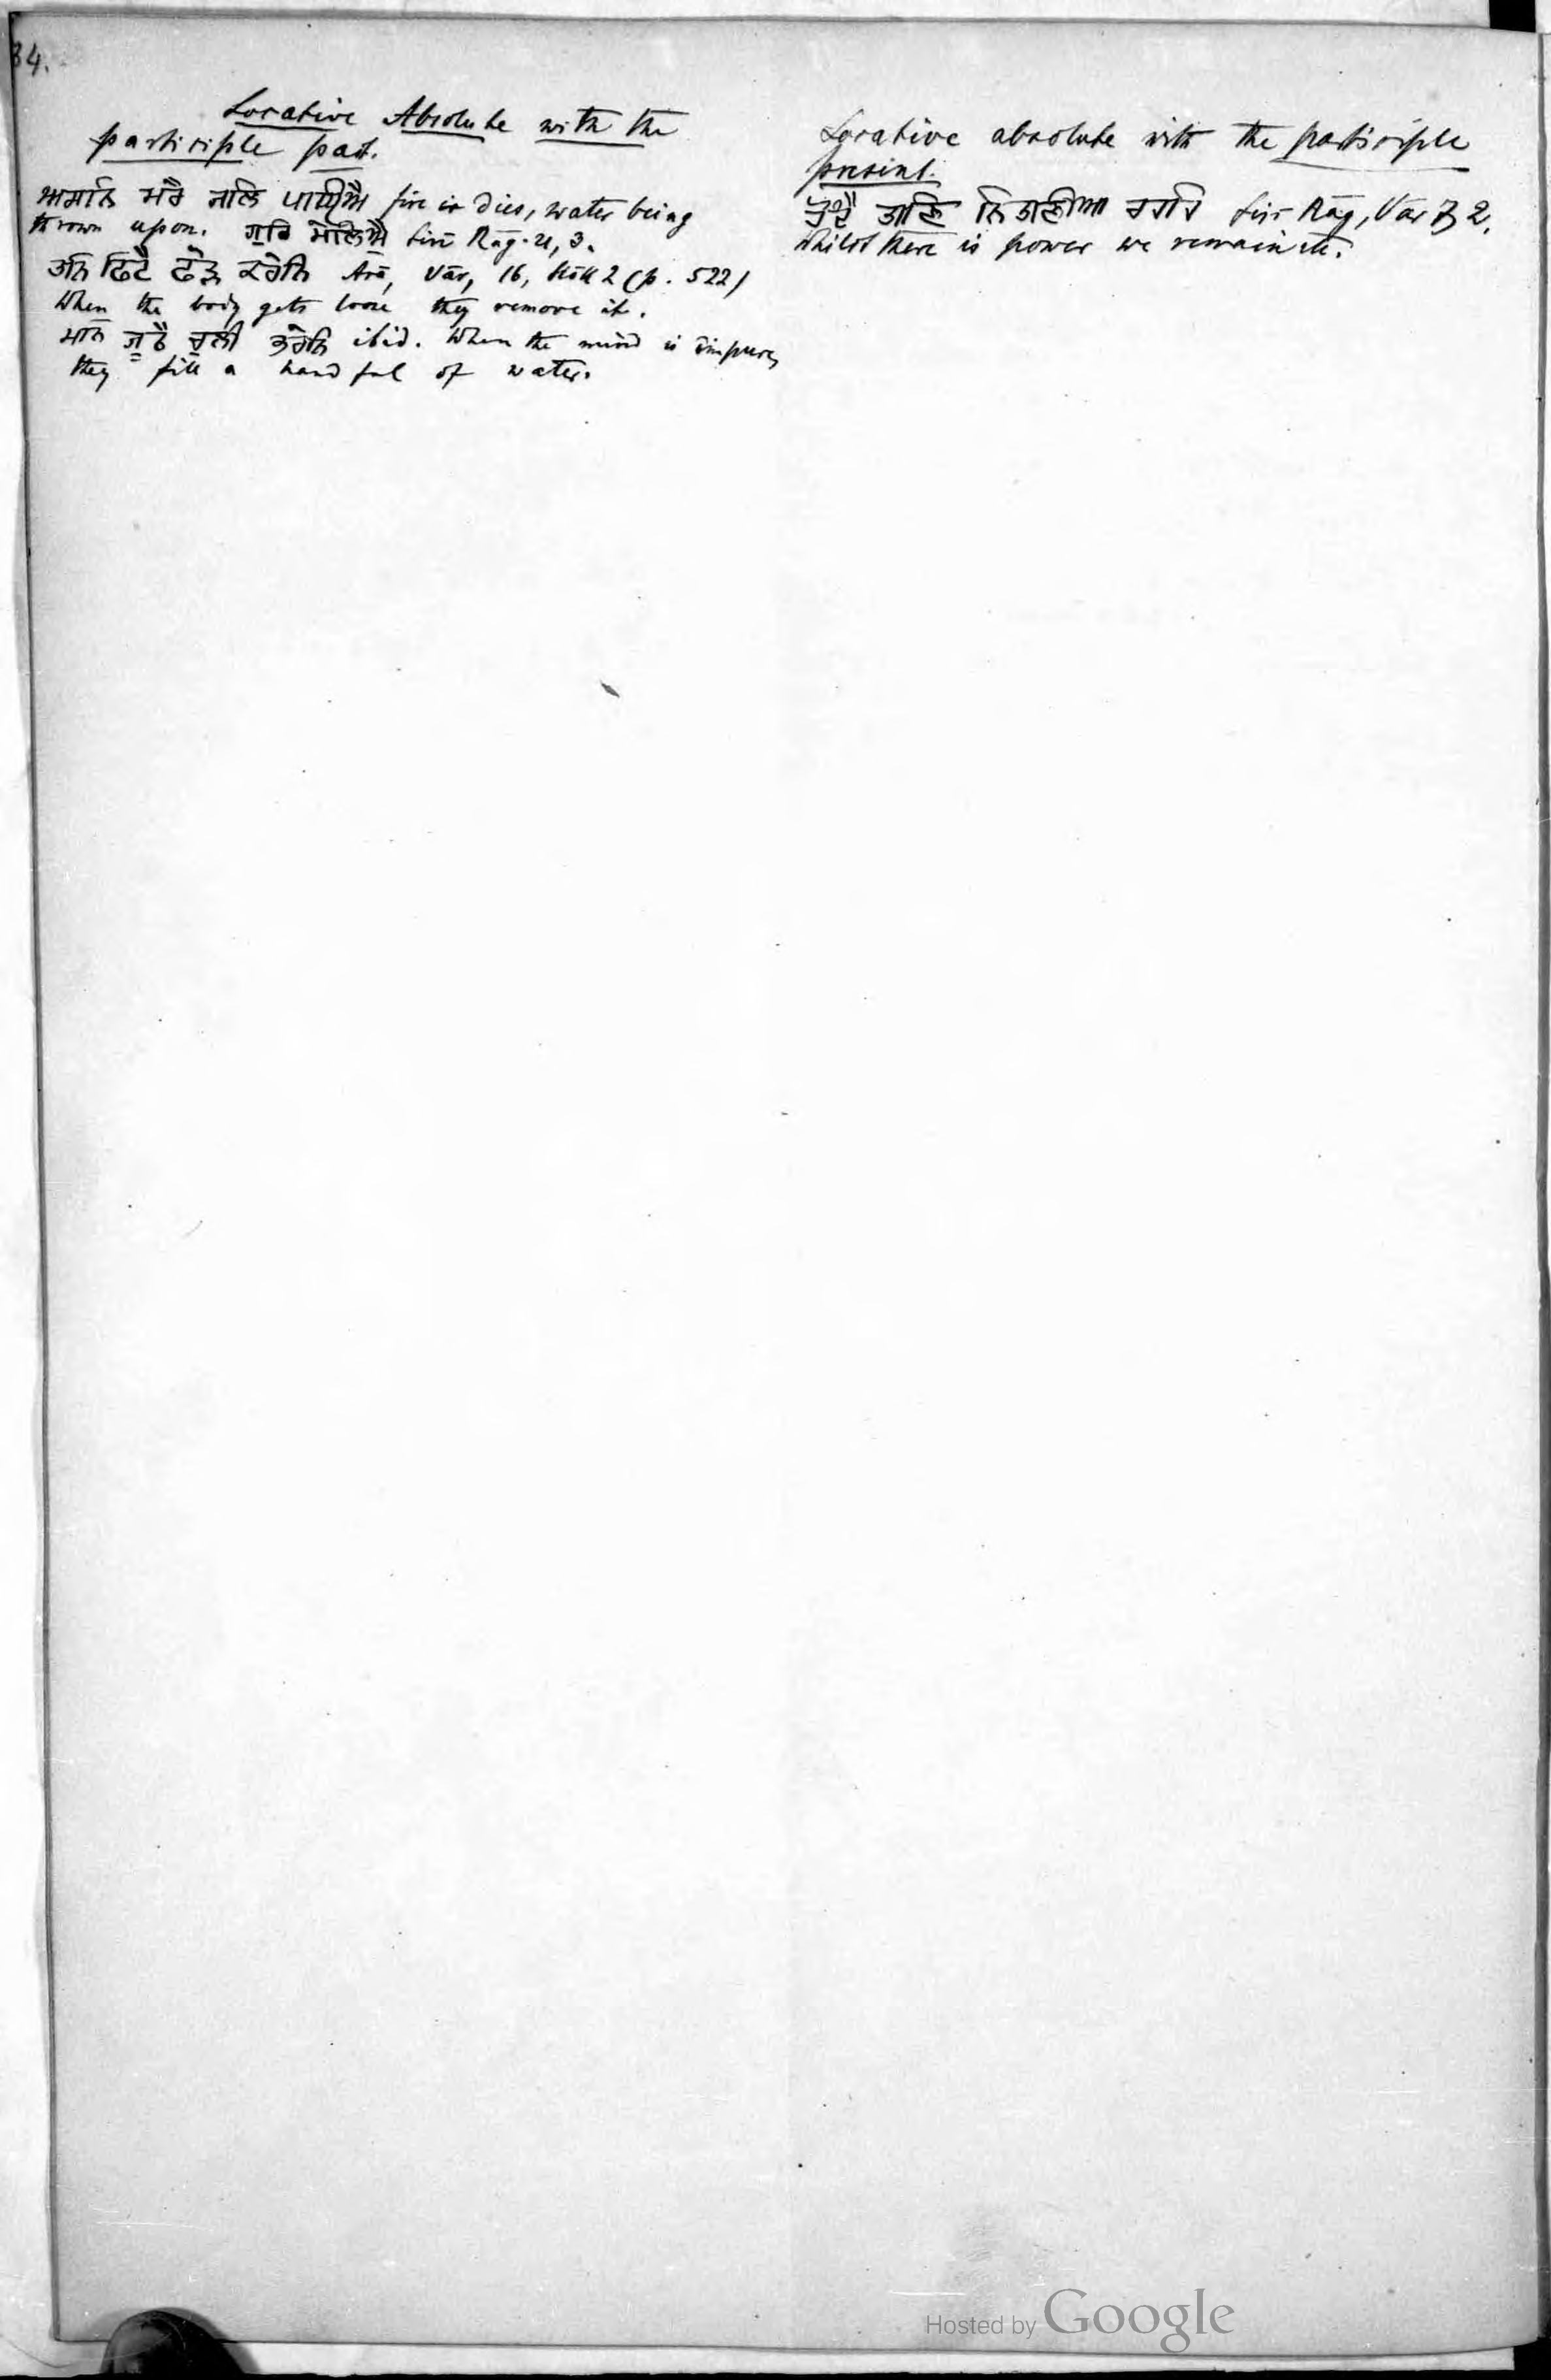 34.
Locative Absolute with the
participle past.
ਅਗਨਿ ਮਰੈ ਜਲਿ ਪਾਇਐ fire is dies, water being
thrown upon. ਗੁਰਿ ਮੇਲਿਐ Sirī Rāg. 21, 3.
ਤਨਿ ਫਿਟੈ ਫੇੜ ਕਰੇਨਿ Āsā, Vār, 16, Slōk 2 (p. 522)
When the body gets loose they remove it.
ਮਨਿ ਜੂਠੈ ਚੁਲੀ ਭਰੇਨਿ ibid. When the mind is impure,
they fill a hand ful of water.
Locative absolute with the participle
present.
ਹੋਦੈ ਤਾਣਿ ਨਿਤਾਣੀਆ ਰਹਹਿ Siri Rāg, Vār 7, 2.
Whilst there is power we remain etc.
Hosted by Google